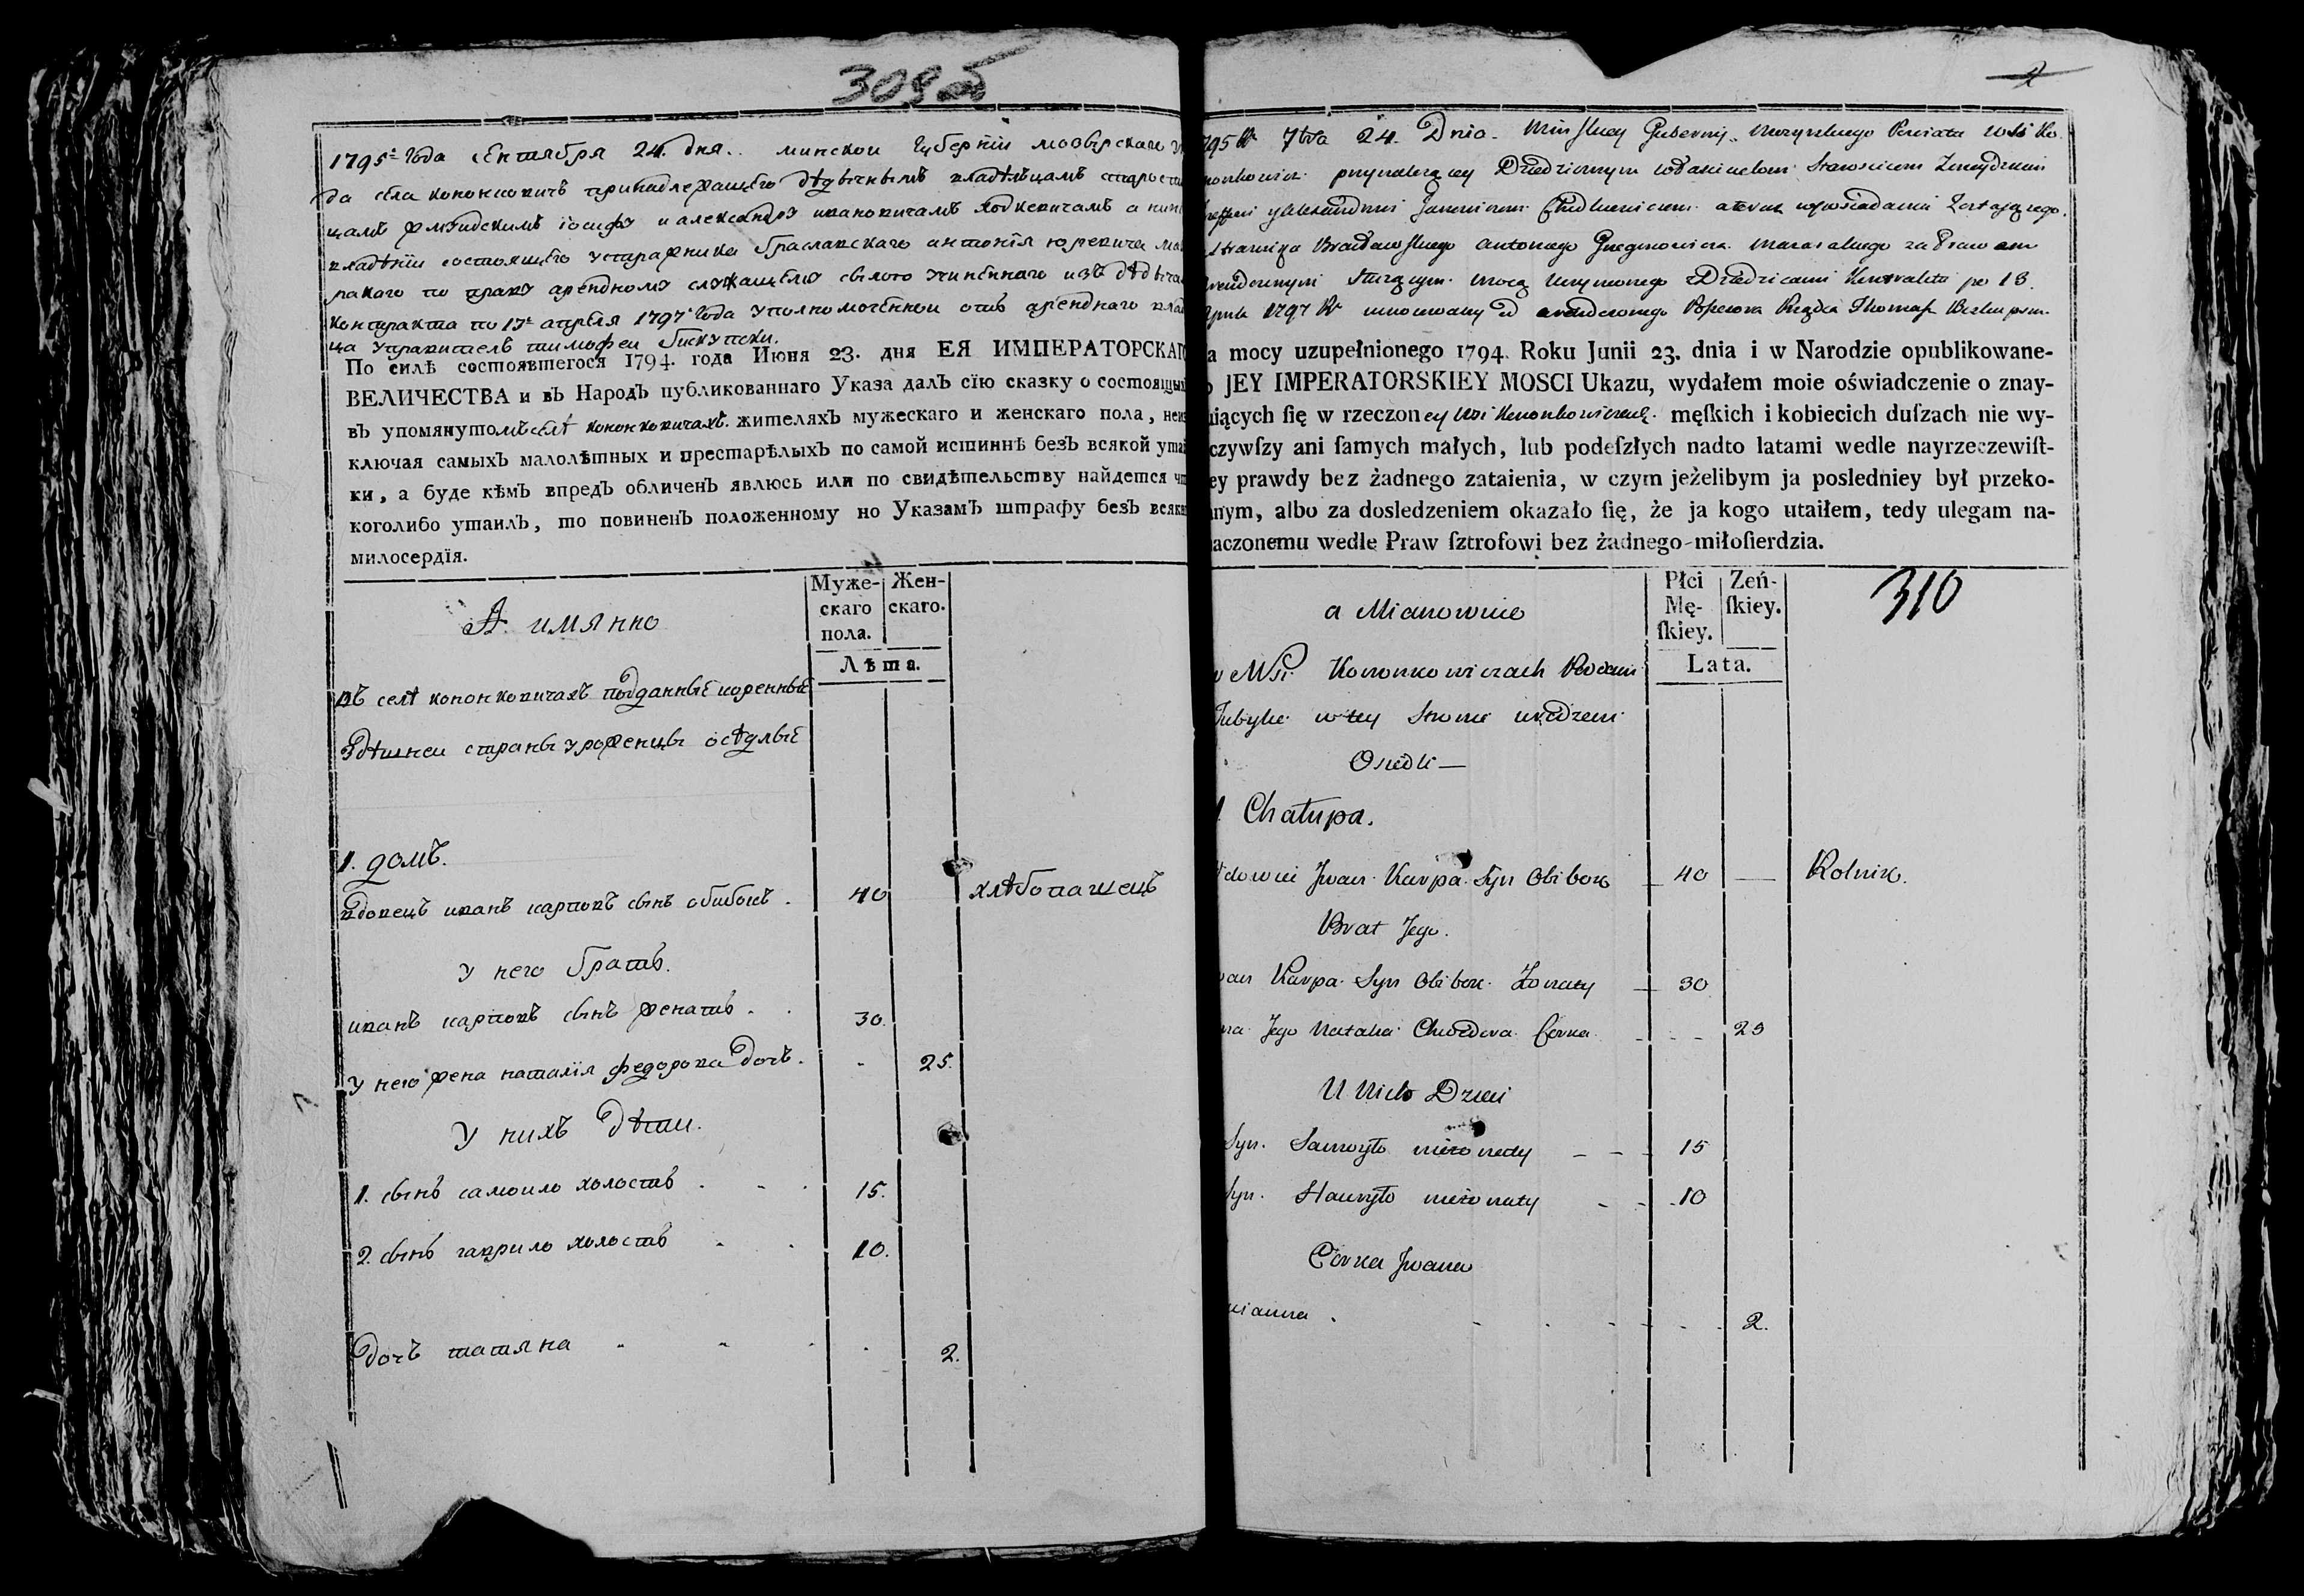 309об
1795г. Года сентября 24. дня.. минской губернїи мозырскаго
да села кононковичъ принадлежащего дѣдычнымъ владѣлцамъ старости
цамъ жмуидскимъ іосифу и александру ивановичамъ ходкевичамъ а нинѣ
владѣнїи состоящего устражника браславскаго антонїя юревича
рскаго по праву арендному служащему силою учиненнаго изъ дѣдыча
контракта по 13е апреля 1797 года уполномоченной отъ аренднаго вла
ца управитель тимофеи бискупски.
По силѣ состоявшегося 1794. года Июня 23. дня ЕЯ ИМПЕРАТОРСКАГО
ВЕЛИЧЕСТВА и въ Народъ публикованнаго Указа далъ сїю сказку о состоящыхъ
въ упомянутомъ селѣ кононковичахъ. жителяхъ мужескаго и женскаго пола, неис
ключая самыхъ малолѣтныхъ и престарѣлыхъ по самой истиннѣ безъ всякой утай
ки, а буде кѣмъ впредъ обличенъ явлюсь или по свидѣтельству найдется что
коголибо утаилъ, то повиненъ положенному но Указамъ штрафу безъ всякаго
милосердїя.
А имянно
Муже-
скаго
пола.
Жен-
скаго.
Лѣта.
Въ селѣ кононковичахъ подданные коренные
здѣшнеи страны уроженцы осѣдлые
1. домъ.
вдовецъ иванъ карповъ сынъ обибокъ . 40 хлѣбопашецъ
у него братъ.
иванъ карповъ сынъ женатъ . . 30.
у него жена наталїя федорова дочъ . - 25.
У нихъ дѣти.
1. сынъ самоило холостъ . - . 15.
2. сынъ гаврило холостъ . . 10.
дочъ татяна . . . . 2.
2
795 Rk 7bra 24. Dnia. Minskiey Gubernij. Mozyrskiego Powiatu Wsi Ko-
nonkowicz. przynależącey Dziedzicznym właścicielom Starościcom Zmuydzkim
y Alexandrowi Janowiczom Chodkiewiczom. a teraz w posiadaniu Zostającego.
Strażnika Bracławskiego Antoniego za Prawem
Arendownym Służącym. Mocą Uczynionego z Dziedzicami Kontraktu po 13.
Aprila 1797 Rk umocowany od Arendownego Posesora Rządca Thomasz
a mocy uzupełnionego 1794. Roku Junii 23. dnia i w Narodzie opublikowane-
o JEY IMPERATORSKIEY MOSCI Ukazu, wydałem moie oświadczenie o znay-
uiących ſię w rzeczoney Wsi Kononkowiczach. męſkich i kobiecich duſzach nie wy-
czywſzy ani ſamych małych, lub podeſzłych nadto latami wedle nayrzeczewiſt-
ey prawdy bez żadnego zataienia, w czym jeżelibym ja posledniey był przeko-
nym, albo za dosledzeniem okazało ſię, że ja kogo utaiłem, tedy ulegam na-
aczonemu wedle Praw ſztrofowi bez żadnego miłoſierdzia.
a Mianowicie
Płci
Mę-
ſkiey.
Zeń-
ſkiey.
Lata.
310
w Wsi Kononkowiczach Poddani
Tubylce w tey Stronie urodzeni
Osiedli —
1 Chałupa.
Wdowiec Jwan Karpa Syn Obibok — 40 — Rolnik.
Brat Jego.
wan Karpa Syn Obibok Zonaty — 30
na Jego Natalia Chwedora Corka - - - 25
U Nich Dzieci
Syn. Samoyło nieżonaty - - - 15
Syn. Hauryło nieżonaty - - - 10
Corka Jwana
cianna . - - - - - - 2.